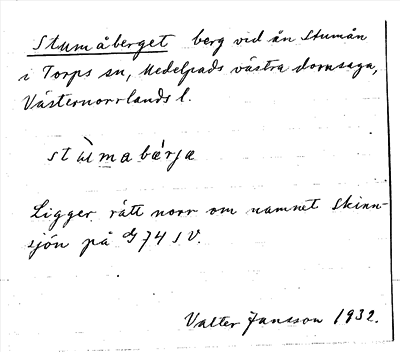 Stumåberget berg vid ån Stumån
i Torps sn, Medelpads västra domsaga,
Västernorrlands l.
stùmabärja
Ligger rätt norr om namnet Skinn-
sjön på G 74 SV.
Valter Jansson 1932.